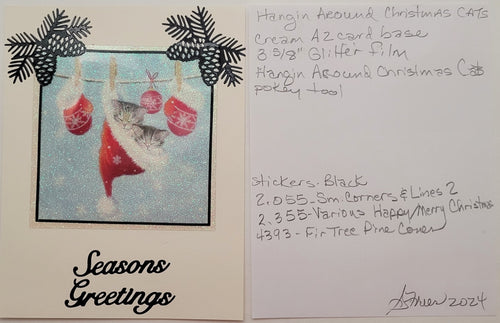 Seasons
Greetings
Hangin Around Christmas Cats
cream A2 card base
3 5/8" Glitter film
Hangin Around Christmas Cats
pokey tool
stickers. Black
2.055-Sm. Corners & Lines 2
2.355-Various Happy/Merry Christmas
4393-Fir Tree Pine Cones
2024